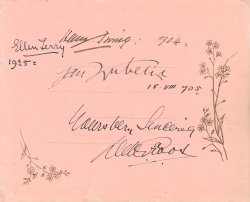 Ellen Terry
1925 =
Henry Irving. 1904.
Jan Kubelik
15. VIII 905.
Yours very Sincerely